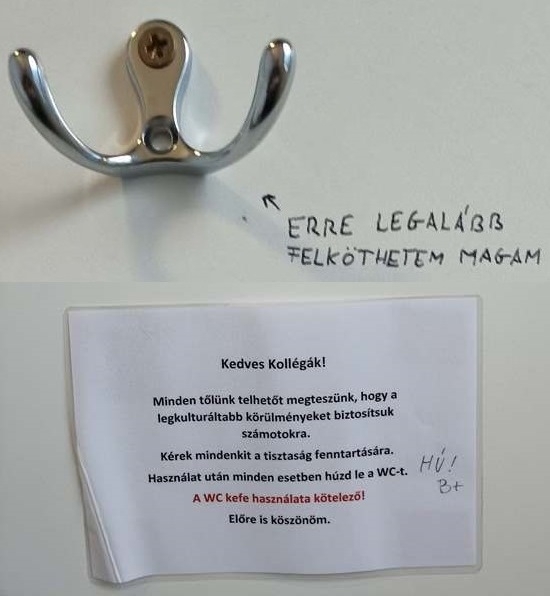 ERRE LEGALÁBB
FELKÖTHETEM MAGAM
Kedves Kollégák!
Minden tőlünk telhetőt megteszünk, hogy a
legkulturáltabb körülményeket biztosítsuk
számotokra.
Kérek mindenkit a tisztaság fenntartására.
Használat után minden esetben húzd le a WC-t.
A WC kefe használata kötelező!
Előre is köszönöm.
HÚ!
B+